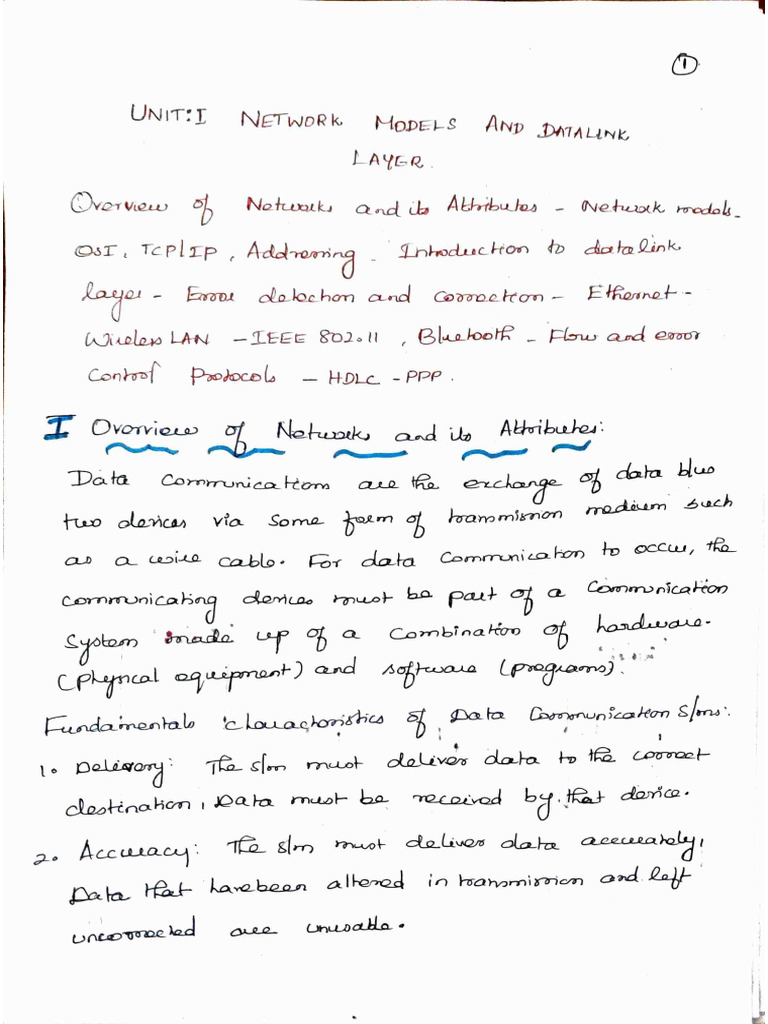 1
UNIT: I NETWORK MODELS AND DATALINK
LAYER.
Overview of Networks and its Attributes - Network models -
OSI, TCP/IP, Addressing - Introduction to datalink
layer - Error detection and correction - Ethernet -
Wireless LAN - IEEE 802.11, Bluetooth - Flow and error
Control Protocols - HDLC - PPP.
I Overview of Networks and its Attributes:
Data Communications are the exchange of data b/w
two devices via some form of transmission medium such
as a wire cable. For data communication to occur, the
communicating devices must be part of a communication
system made up of a combination of hardware
(physical equipment) and software (programs).
Fundamentals characteristics of Data Communication S/ms:
1. Delivery: The s/m must deliver data to the correct
destination, Data must be received by that device.
2. Accuracy: The s/m must deliver data accurately,
Data that have been altered in transmission and left
uncorrected are unusable.